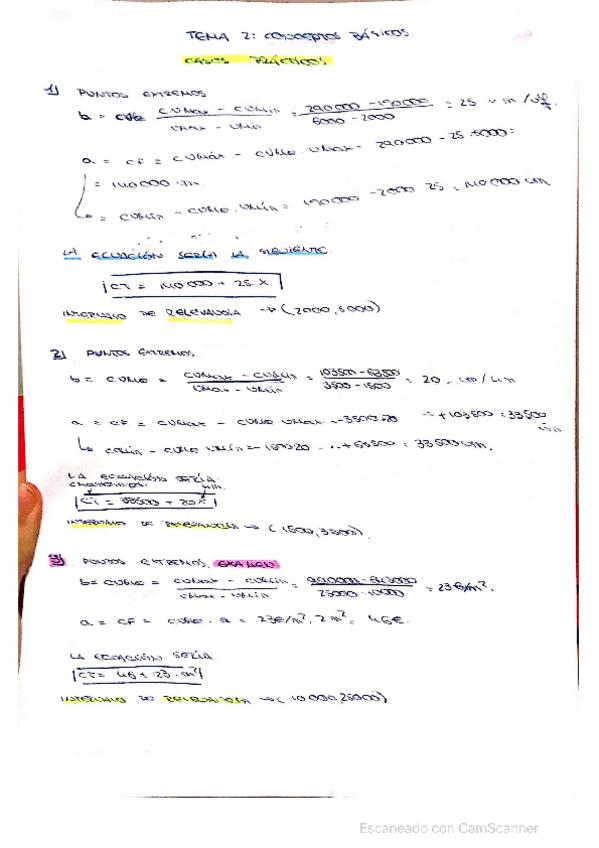 TEMA 2: CONCEPTOS BÁSICOS
CASOS PRÁCTICOS
1) PUNTOS EXTREMOS
b = CVMe = CVMax - CVMín / VMax - VMín = 290000 - 190000 / 6000 - 2000 = 25 u.m /
a = CF = CVMáx - CVMe . VMax = 290000 - 25 . 6000 =
= 140 000 u.m.
↳ = CVMín - CVMe . VMín = 190 000 - 2000 25 = 140000 u.m
LA ECUACIÓN SERÍA LA SIGUIENTE
CT = 140 000 + 25 . X
INTERVALO DE RELEVANCIA → (2000, 5000)
2) PUNTOS EXTREMOS.
b = CVMe = CVMax - CVMín / VMax - VMín = 103500 - 63500 / 3500 - 1500 = 20 . u.m /
a = CF = CVMax - CVMe . VMax = -3500.20 + 103500 = 33500
↳ - CVMe VMín = + 63500 = 33500 u.m.
LA ECUACIÓN SERÍA
CT = 33500 + 20 X
INTERVALO DE RELEVANCIA → (1500, 3500).
3) PUNTOS EXTREMOS, EXAMEN
b = CVMe = CVMax - CVMín / VMax - VMín = / 25000 - 10000 = 23 €/m².
a = CF = CVMe . a = 23€/m². 2 m² = 46€.
LA ECUACIÓN SERÍA
CT = 46 + 23 . m²
INTERVALO DE RELEVANCIA → (10.000, 25000)
Escaneado con CamScanner